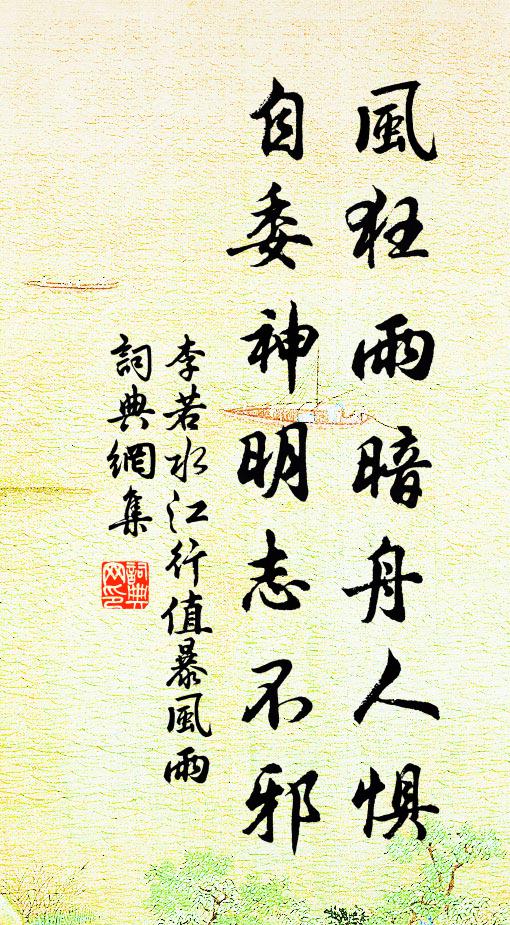 風狂雨暗舟人懼
自委神明志不邪
李若水江行值暴風雨
詞典網集
詞典網印